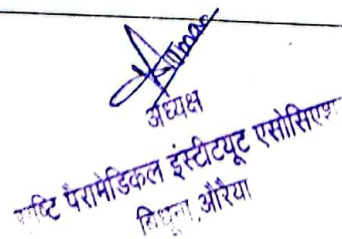 अध्यक्ष
पैरामेडिकल इंस्टीटयूट एसोसिएश
बिधूना, औरैया